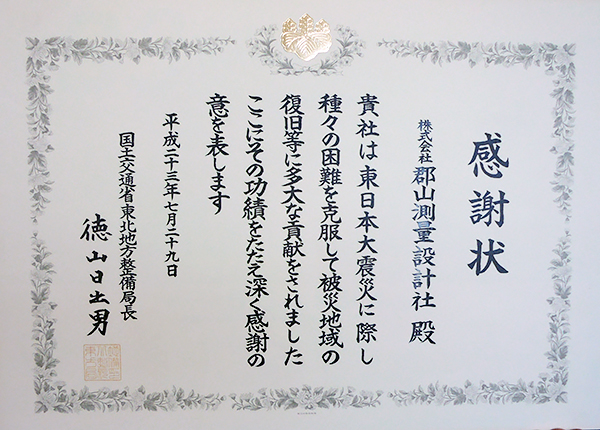 感謝状
株式会社 郡山測量設計社 殿
貴社は東日本大震災に際し
種々の困難を克服して被災地域の
復旧等に多大な貢献をされました
ここにその功績をたたえ深く感謝の
意を表します
平成二十三年七月二十九日
国土交通省東北地方整備局長
徳山日出男